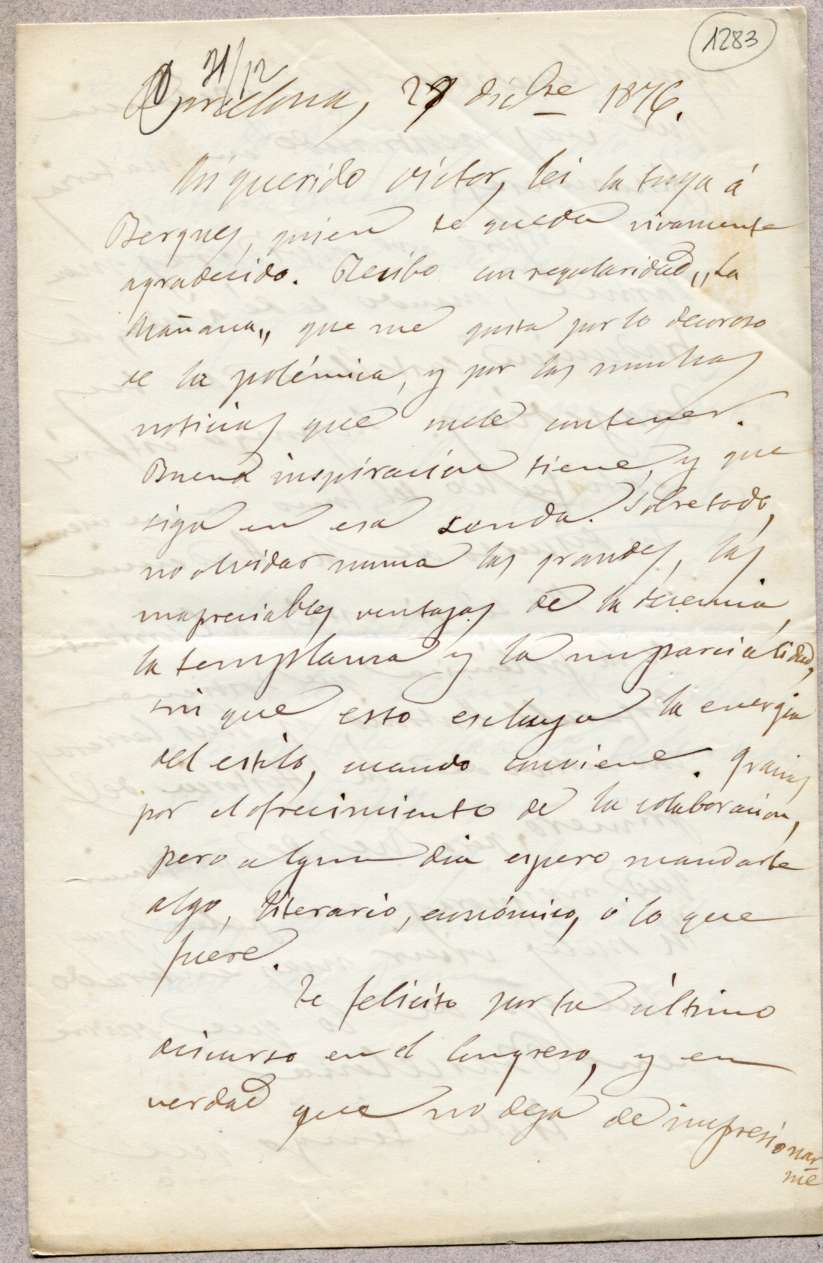 1283
31/12
Barcelona, 27 dicbre 1876.
Mi querido Victor, leí la tuya á
Bergnes, quien te queda vivamente
agradecido. Recibo con regularidad „La
Mañana„ que me gusta por lo decoroso
de la polémica, y por las muchas
noticias que suele contener.
Buena inspiración tiene, y que
siga en esa senda. Sobretodo,
no olvidar nunca las grandes, las
inapreciables ventajas de la decencia,
la templanza y la imparcialidad,
sin que esto escluya la energia
del estilo, cuando conviene. Gracias
por el ofrecimiento de la colaboracion,
pero algun dia espero mandarte
algo, literario, económico, ó lo que
fuere.
Te felicito por tu último
discurso en el Congreso, y en
verdad que no deja de impresionar
me